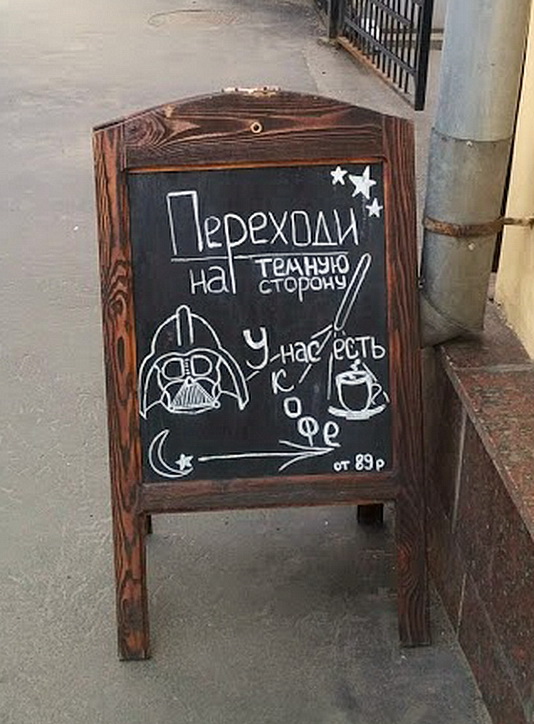 Переходи
на темную
сторону
У нас есть
кофе
от 89 р